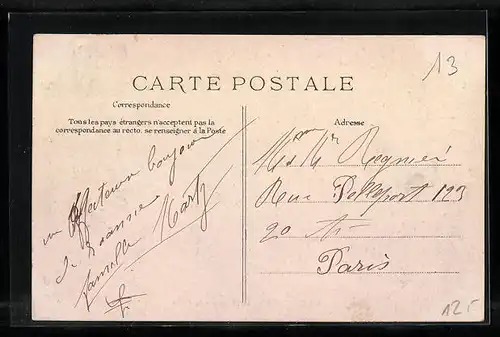 13
CARTE POSTALE
Correspondance
Tous les pays étrangers n'acceptent pas la
correspondance au recto, se renseigner à la Poste
un affectueux bonjour
de Roanne
famille Martz
Adresse
Mr Regnier
Rue Pelleport 193
20
Paris